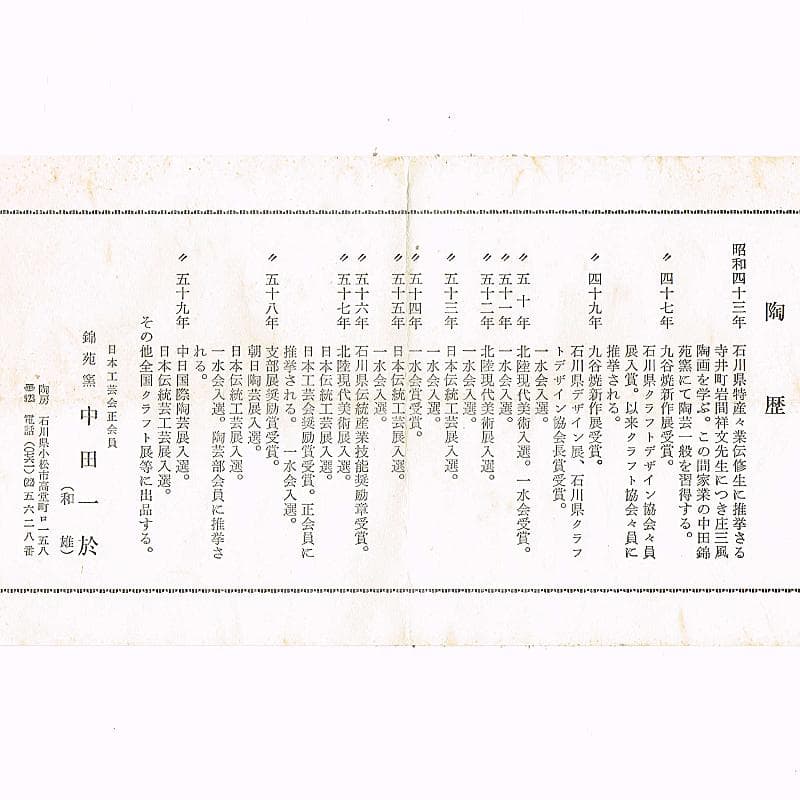 陶歴
昭和四十三年 石川県特産々業伝修生に推挙さる
寺井町岩間祥文先生につき庄三風
陶画を学ぶ。この間家業の中田錦
苑窯にて陶芸一般を習得する。
〃 四十七年 九谷焼新作展受賞。
石川県クラフトデザイン協会々員
展入賞。以来クラフト協会々員に
推挙される。
〃 四十九年 九谷焼新作展受賞。
石川県デザイン展、石川県クラフ
トデザイン協会長賞受賞。
一水会入選。
〃 五十年 北陸現代美術入選。一水会受賞。
〃 五十一年 一水会入選。
〃 五十二年 北陸現代美術展入選。
一水会入選。
〃 五十三年 日本伝統工芸展入選。
一水会入選。
〃 五十四年 一水会賞受賞。
〃 五十五年 日本伝統工芸展入選。
一水会入選。
〃 五十六年 石川県伝統産業技能奨励章受賞。
〃 五十七年 北陸現代美術展入選。
日本伝統工芸展入選。
日本工芸会奨励賞受賞。正会員に
推挙される。一水会入選。
〃 五十八年 支部展奨励賞受賞。
朝日陶芸展入選。
日本伝統工芸展入選。
一水会入選。陶芸部会員に推挙さ
れる。
〃 五十九年 中日国際陶芸展入選。
日本伝統工芸展入選。
その他全国クラフト展等に出品する。
日本工芸会正会員
錦苑窯 中田一於
(和雄)
陶房 石川県小松市高堂町ロ一五八
電話(〇七六一)五六二八番